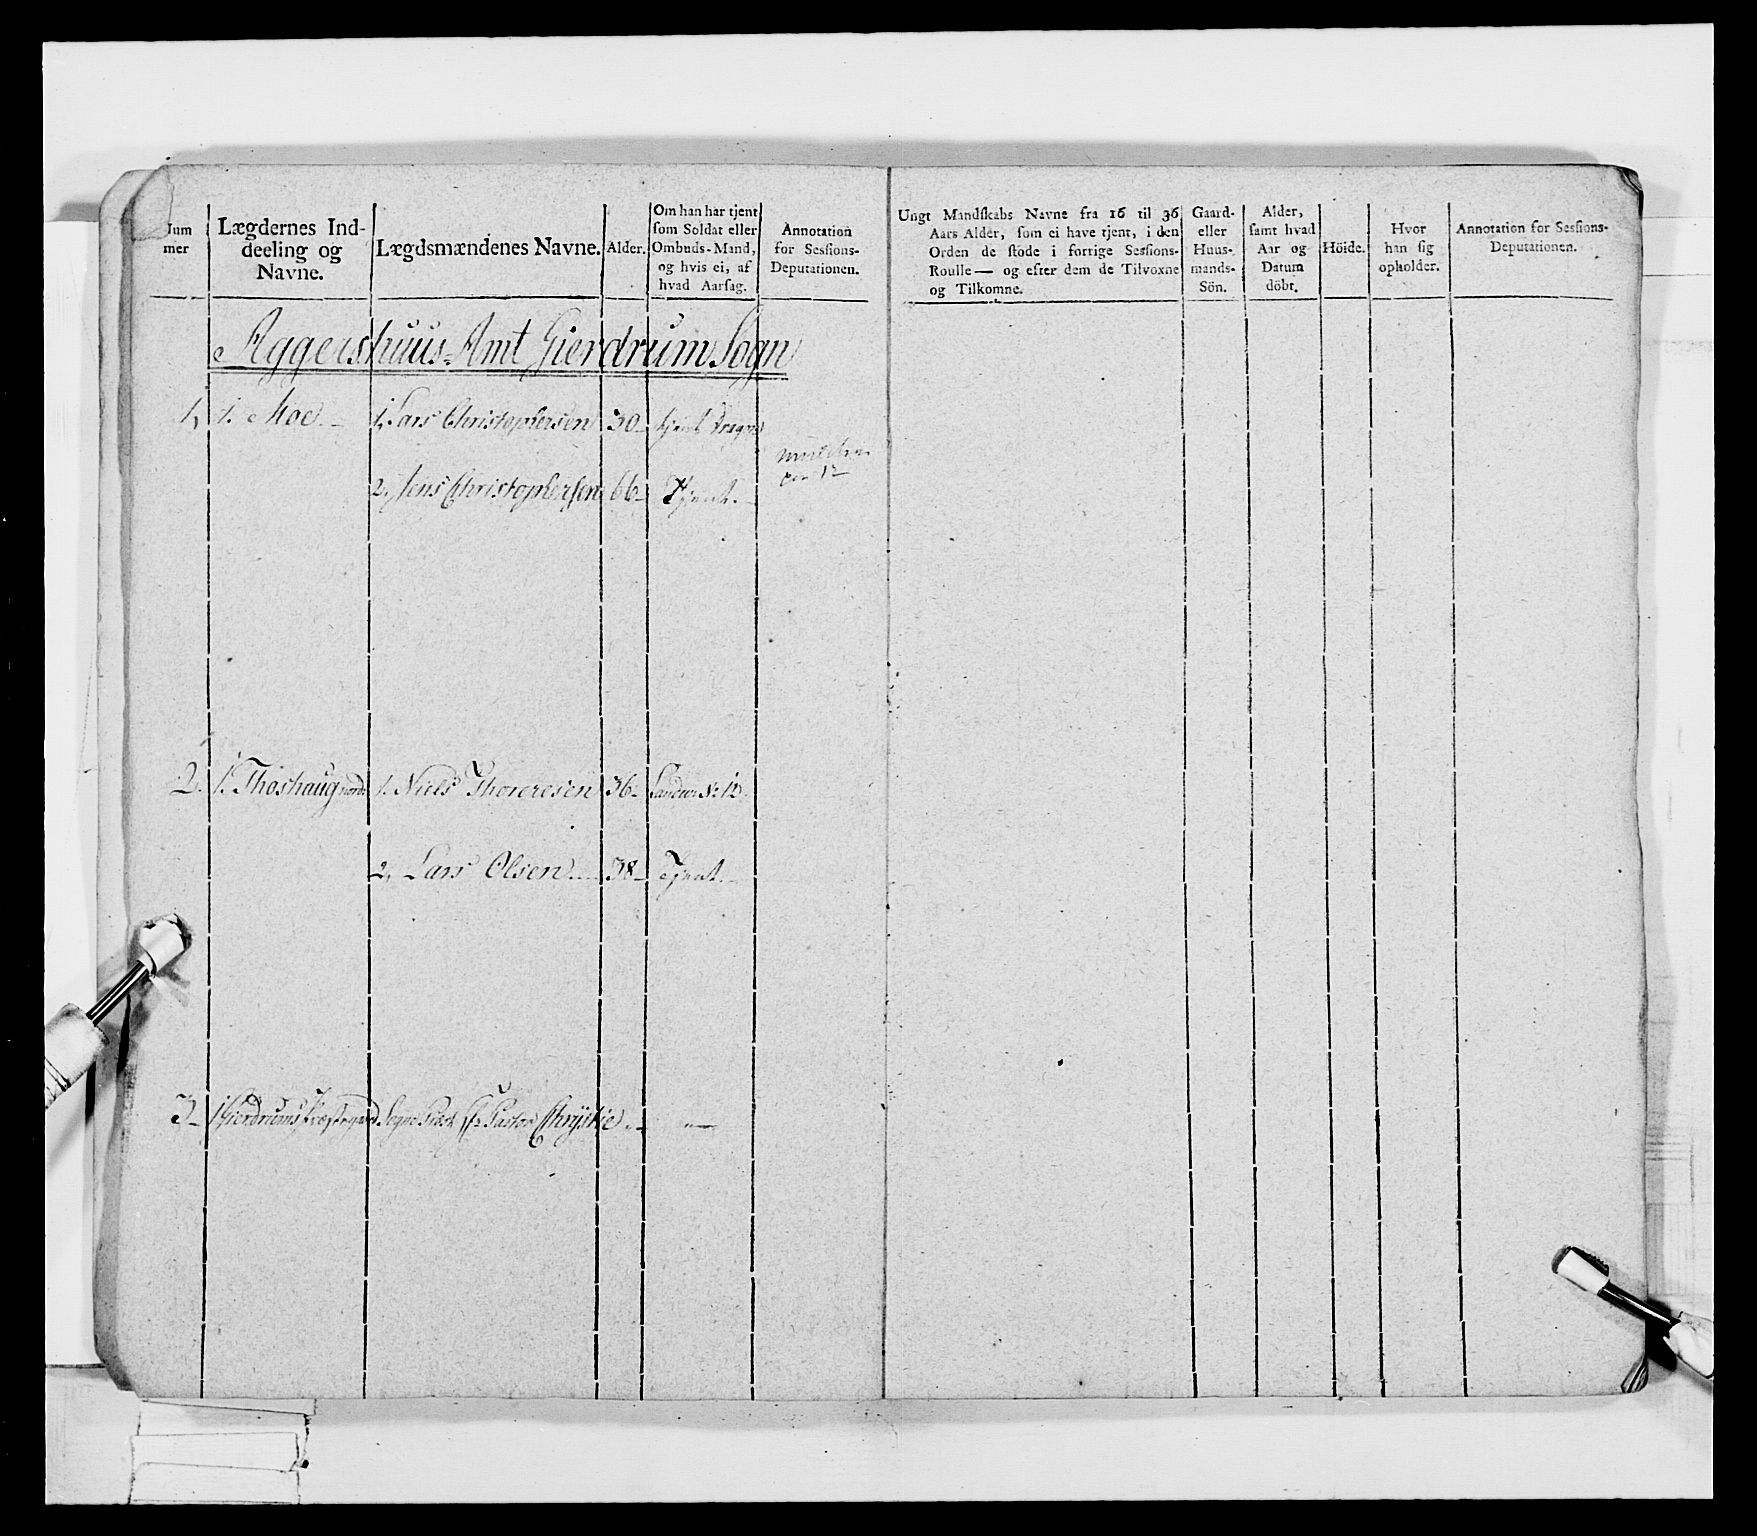 Num
mer
Lægdernes Ind-
deeling og
Navne.
Lægdsmændenes Navne.
Alder.
Om han har tjent
som Soldat eller
Ombuds-Mand,
og hvis ei, af
hvad Aarsag.
Annotation
for Sessions-
Deputationen.
Ungt Mandskabs Navne fra 16 til 36
Aars Alder, som ei have tjent, i den
Orden de stode i forrige Sessions-
Roulle — og efter dem de Tilvoxne
og Tilkomne.
Gaard-
eller
Huus-
mands-
Sön.
Alder,
samt hvad
Aar og
Datum
döbt.
Höide.
Hvor
han sig
opholder.
Annotation for Sessions-
Deputationen.
Aggershuus-Amt Gierdrum Sogn
1, 1. Moe 1, Lars Christophersen 30 tjent Dragon
2, Jens Christophersen 66 Tjent.
2. 1. Thoshaug nordr 1. Niels Thoreresen 36 No 12
2, Lars Olsen 38 Tjent
3 1 Gierdrums Præstegaard Sogne Præst Hr Pastor Chrystie